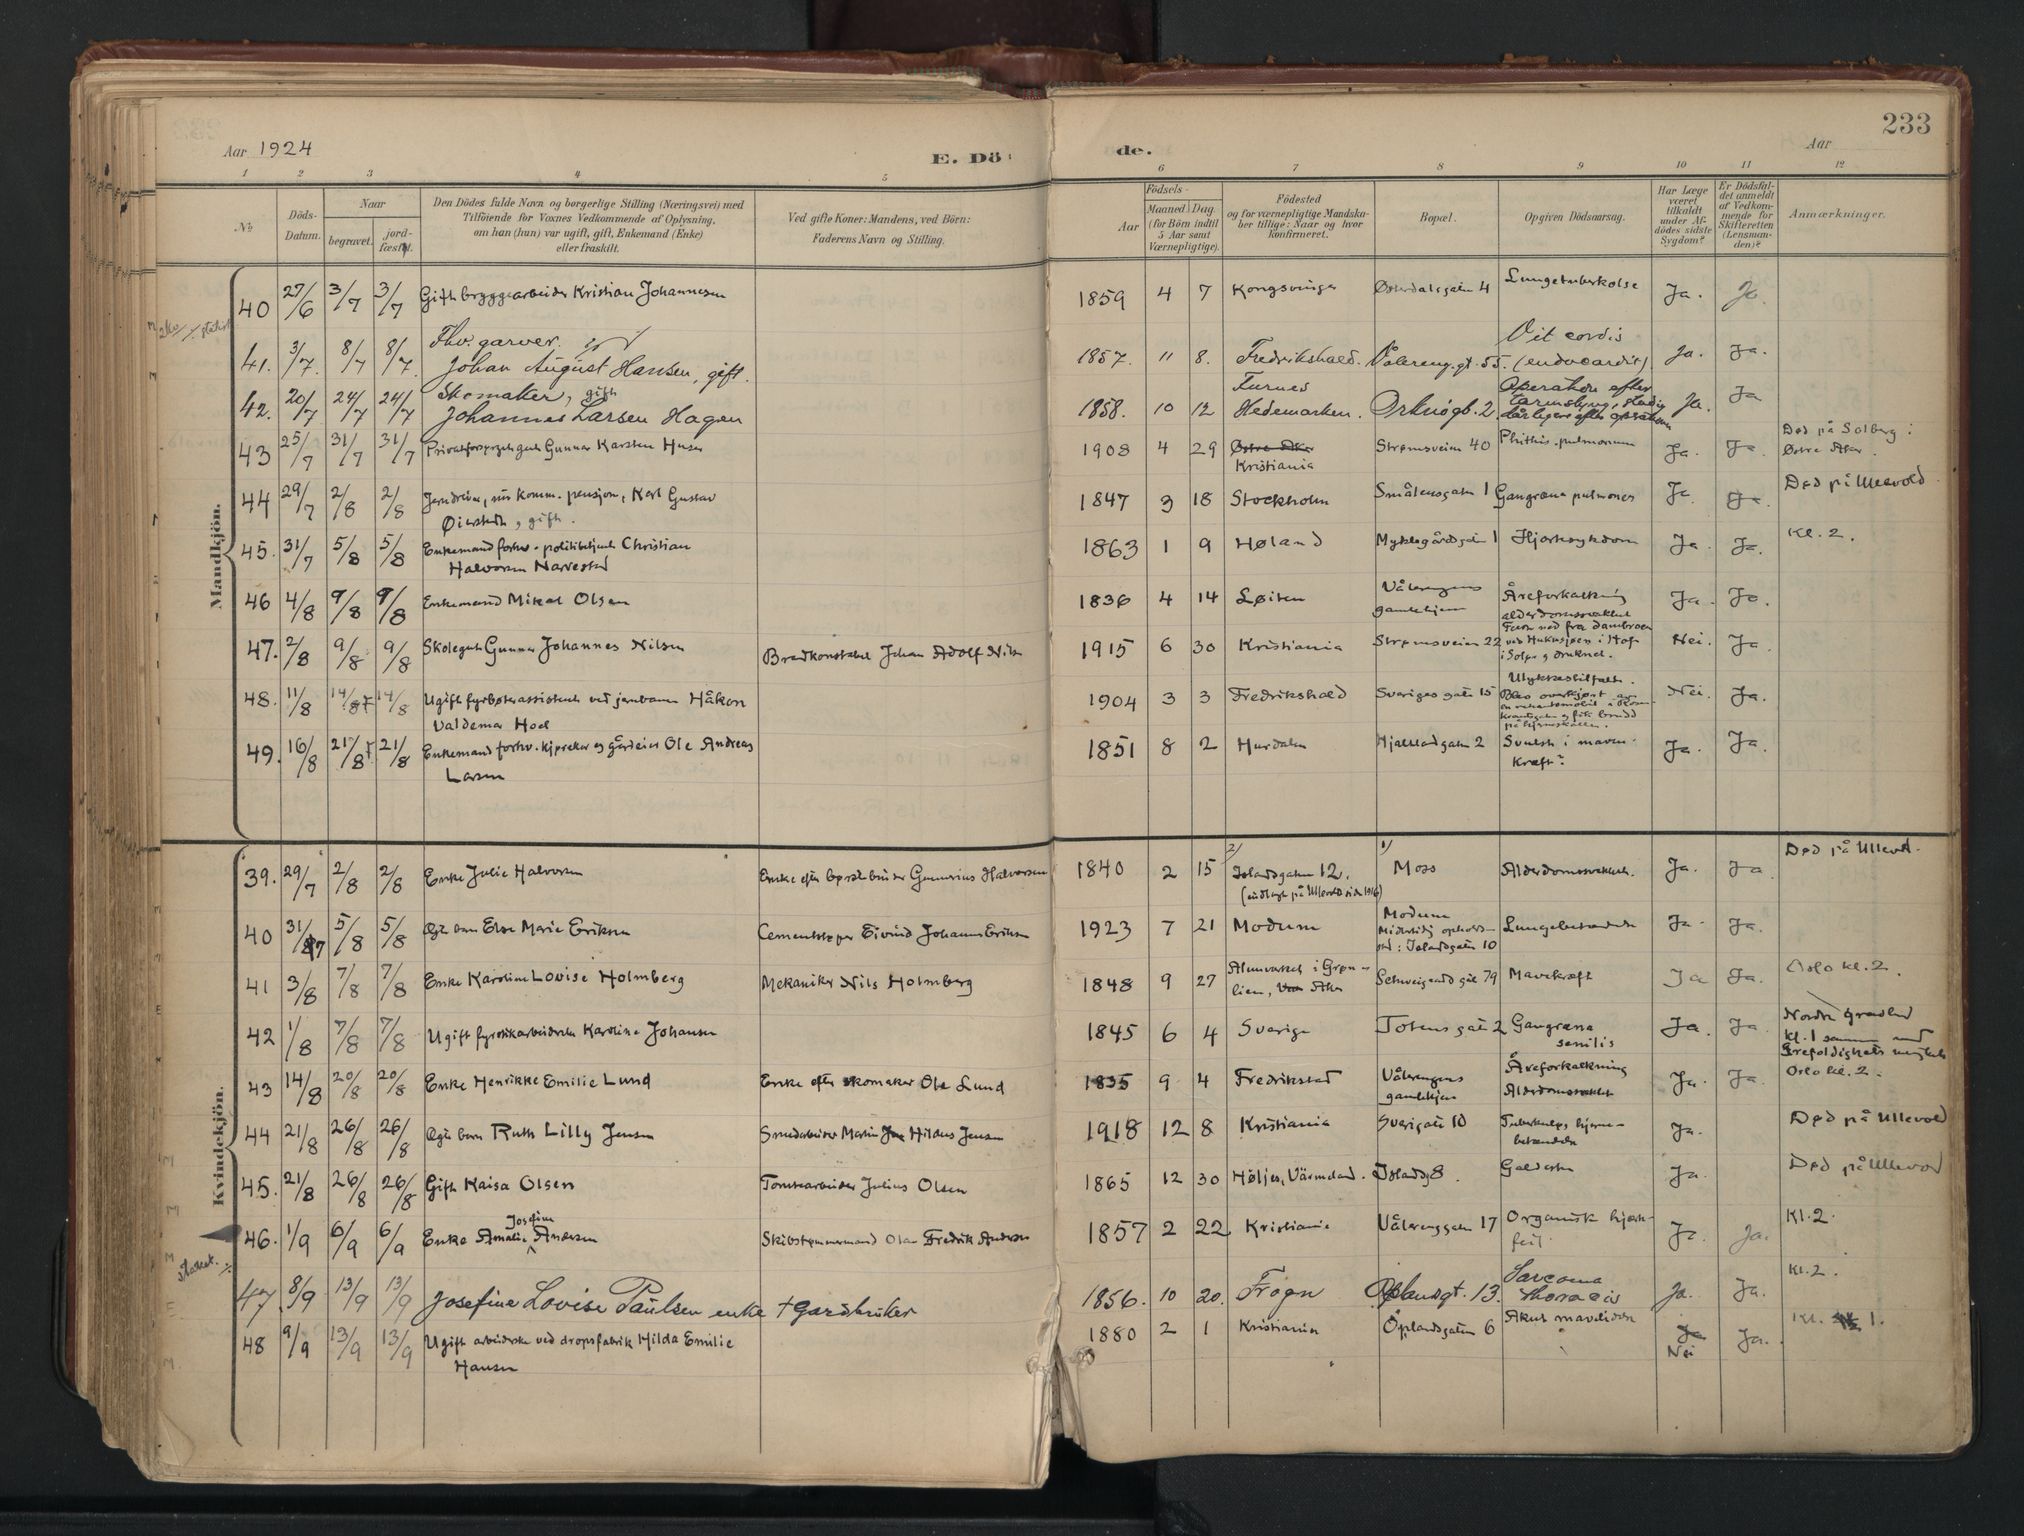 233
Aar 1924
E. Dö
de.
Aar
1 2 3 4 5 6 7 8 9 10 11 12
№
Döds-Datum.
Naar
begravet.
jord-fæstet.
Den Dödes fulde Navn og borgerlige Stilling (Næringsvei) med
Tilföiende for Voxnes Vedkommende af Oplysning,
om han (hun) var ugift, gift, Enkemand (Enke)
eller fraskilt.
Ved gifte Koner: Mandens, ved Börn:
Faderens Navn og Stilling.
Aar
Födsels-
Maaned Dag
(for Börn indtil
5 Aar samt
Værnepligtige).
Födested
og for værnepligtige Mandska-
ber tillige: Naar og hvor
konfirmeret.
Bopæl.
Opgiven Dödsaarsag.
Har Læge
været
tilkaldt
under Af-
dödes sidste
Sygdom?
Er Dödsfal-
det anmeldt
af Vedkom-
mende for
Skifteretten
(Lensman-
den)?
Anmærkninger.
Mandkjön.
40 27/6 3/7 3/7 Gift bryggearbeider Kristian Johannesen 1859 4 7 Kongsvinger Østerdalsgaten 4 Lungetuberkolse Ja. Ja.
41. 3/7. 8/7 8/7. Fhv. garver.
Johan August Hansen, gift. 1857. 11 8. Fredrikshald. Vålereng.gt. 55. Vit cordis
(endocardit) Ja. Ja.
42. 20/7 24/7 24/7 Skomaker, gift
Johannes Larsen Hagen 1858. 10 12 Furnes
Hedemarken. Orknøgt. 2. Operation efter
Ja. Ja
43 25/7 31/7 31/7 Gunnar Karsten 1908 4 29 Østre Aker
Kristiania Strømsveien 40 Phthis. pulmonum Ja. Ja Død på Solberg i
Østre Aker.
44 29/7 2/8 2/8 komm. pensjon, Karl Gustav
gift. 1847 3 18 Stockholm Smålensgaten 1 Gangræna pulmones Ja Ja. Død på Ullevold
45. 31/7 5/8 5/8 Enkemand forhv. politibetjent Christian
Halvorsen Narvestad 1863 1 9 Høland Myklegårdsgaten 1 Hjertesykdom Ja. Ja. Kl. 2.
46 4/8 9/8 9/8 Enkemand Mikal Olsen 1836 4 14 Løiten Vålerengens
gamlehjem Åreforkalkning
alderdomssvakhet Ja. Ja.
47. 2/8 9/8 9/8 Skolegutt Gunnar Johannes Nilsen Brandkonstabel Johan Adolf Nilsen 1915 6 30 Kristiania Strømsveien 22
i Solør og druknet. Nei. Ja.
48. 11/8 14/8 14/8 Ugift fyrbøterassistent ved jernbanen Håkon
Valdemar Hoel 1904 3 3 Fredrikshald Sveriges gate 15 Ulykkestilfælle.
Blev overkjørt av
Nei. Ja.
49. 16/8 21/8 21/8 Enkemand forhv. kjøreker og gårdeier Ole Andreas
Larsen 1851 8 2 Hurdalen Hjeltlandgaten 2 Svulst i maven.
Kræft? Ja. Ja.
Kvindekjön.
39. 29/7 2/8 2/8 Enke Julie Halvorsen Enke efter børstebinder Gunerius Halvorsen 1840 2 15 2/ Islandsgaten 12.
(indlagt på Ullevold siden 1916) 1/ Moss Alderdomssvakhet. Ja. Ja. Død på Ullevol.
40 31/7 5/8 5/8 Egte barn Else Marie Eriksen Cementstøper Eivind Johannes Eriksen 1923 7 21 Modum Modum
Midlertidig opholds-
sted: Islandsgaten 10 Lungebetændelse Ja. Ja.
41 3/8 7/8 7/8 Enke Karoline Lovise Holmberg Mekaniker Nils Holmberg 1848 9 27 Alunverket i Grøn-
lien, Aker Schweigaards gate 79 Mavekræft Ja Ja. Oslo kl. 2.
42 1/8 7/8 7/8 Ugift fyrstikkarbeiderske Karoline Johansen 1845 6 4 Sverige Totens gate 2 Gangræna
senilis Ja. Ja Nordre Gravlund
kl. 1 sammen med
43 14/8 20/8 20/8 Enke Henrikke Emilie Lund Enke efter skomaker Ole Lund 1835 9 4 Fredrikstad Vålerengens
gamlehjem Åreforkalkning
Alderdomssvakhet Ja. Ja. Oslo kl. 2.
44 21/8 26/8 26/8 Egte barn Ruth Lilly Jensen Smedarbeider Martin Hildus Jensen 1918 12 8 Kristiania Sverigesgate 10 Tuberkuløs hjerne-
betændelse Ja. Død på Ullevold
45. 21/8 26/8 26/8 Gift Kaisa Olsen Tomtearbeider Julius Olsen 1865 12 30 Høljes, Värmeland. Islandsg 8. Galdesten Ja. Død på Ullevold
46. 1/9 6/9 6/9 Enke Amalie Josefine Andersen Skibstømmermand Olaf Fredrik Andersen 1857 2 22 Kristiania Vålerenggaten 17 Organisk hjerte-
feil. Ja. Ja. Kl. 2.
47 8/9 13/9 13/9 Josefine Lovise Paulsen enke † Gardbruker 1856. 10 20. Frogn Oplandsgt. 13. Sarcoma
thoracis Ja. Ja. Kl. 2.
48 9/9 13/9 13/9 Ugift arbeiderske ved dropsfabrik Hilda Emilie
Hansen 1880 2 1 Kristiania Oplandsgaten 6 Akut mavelidelse Ja
Nei Ja. Kl. 1.